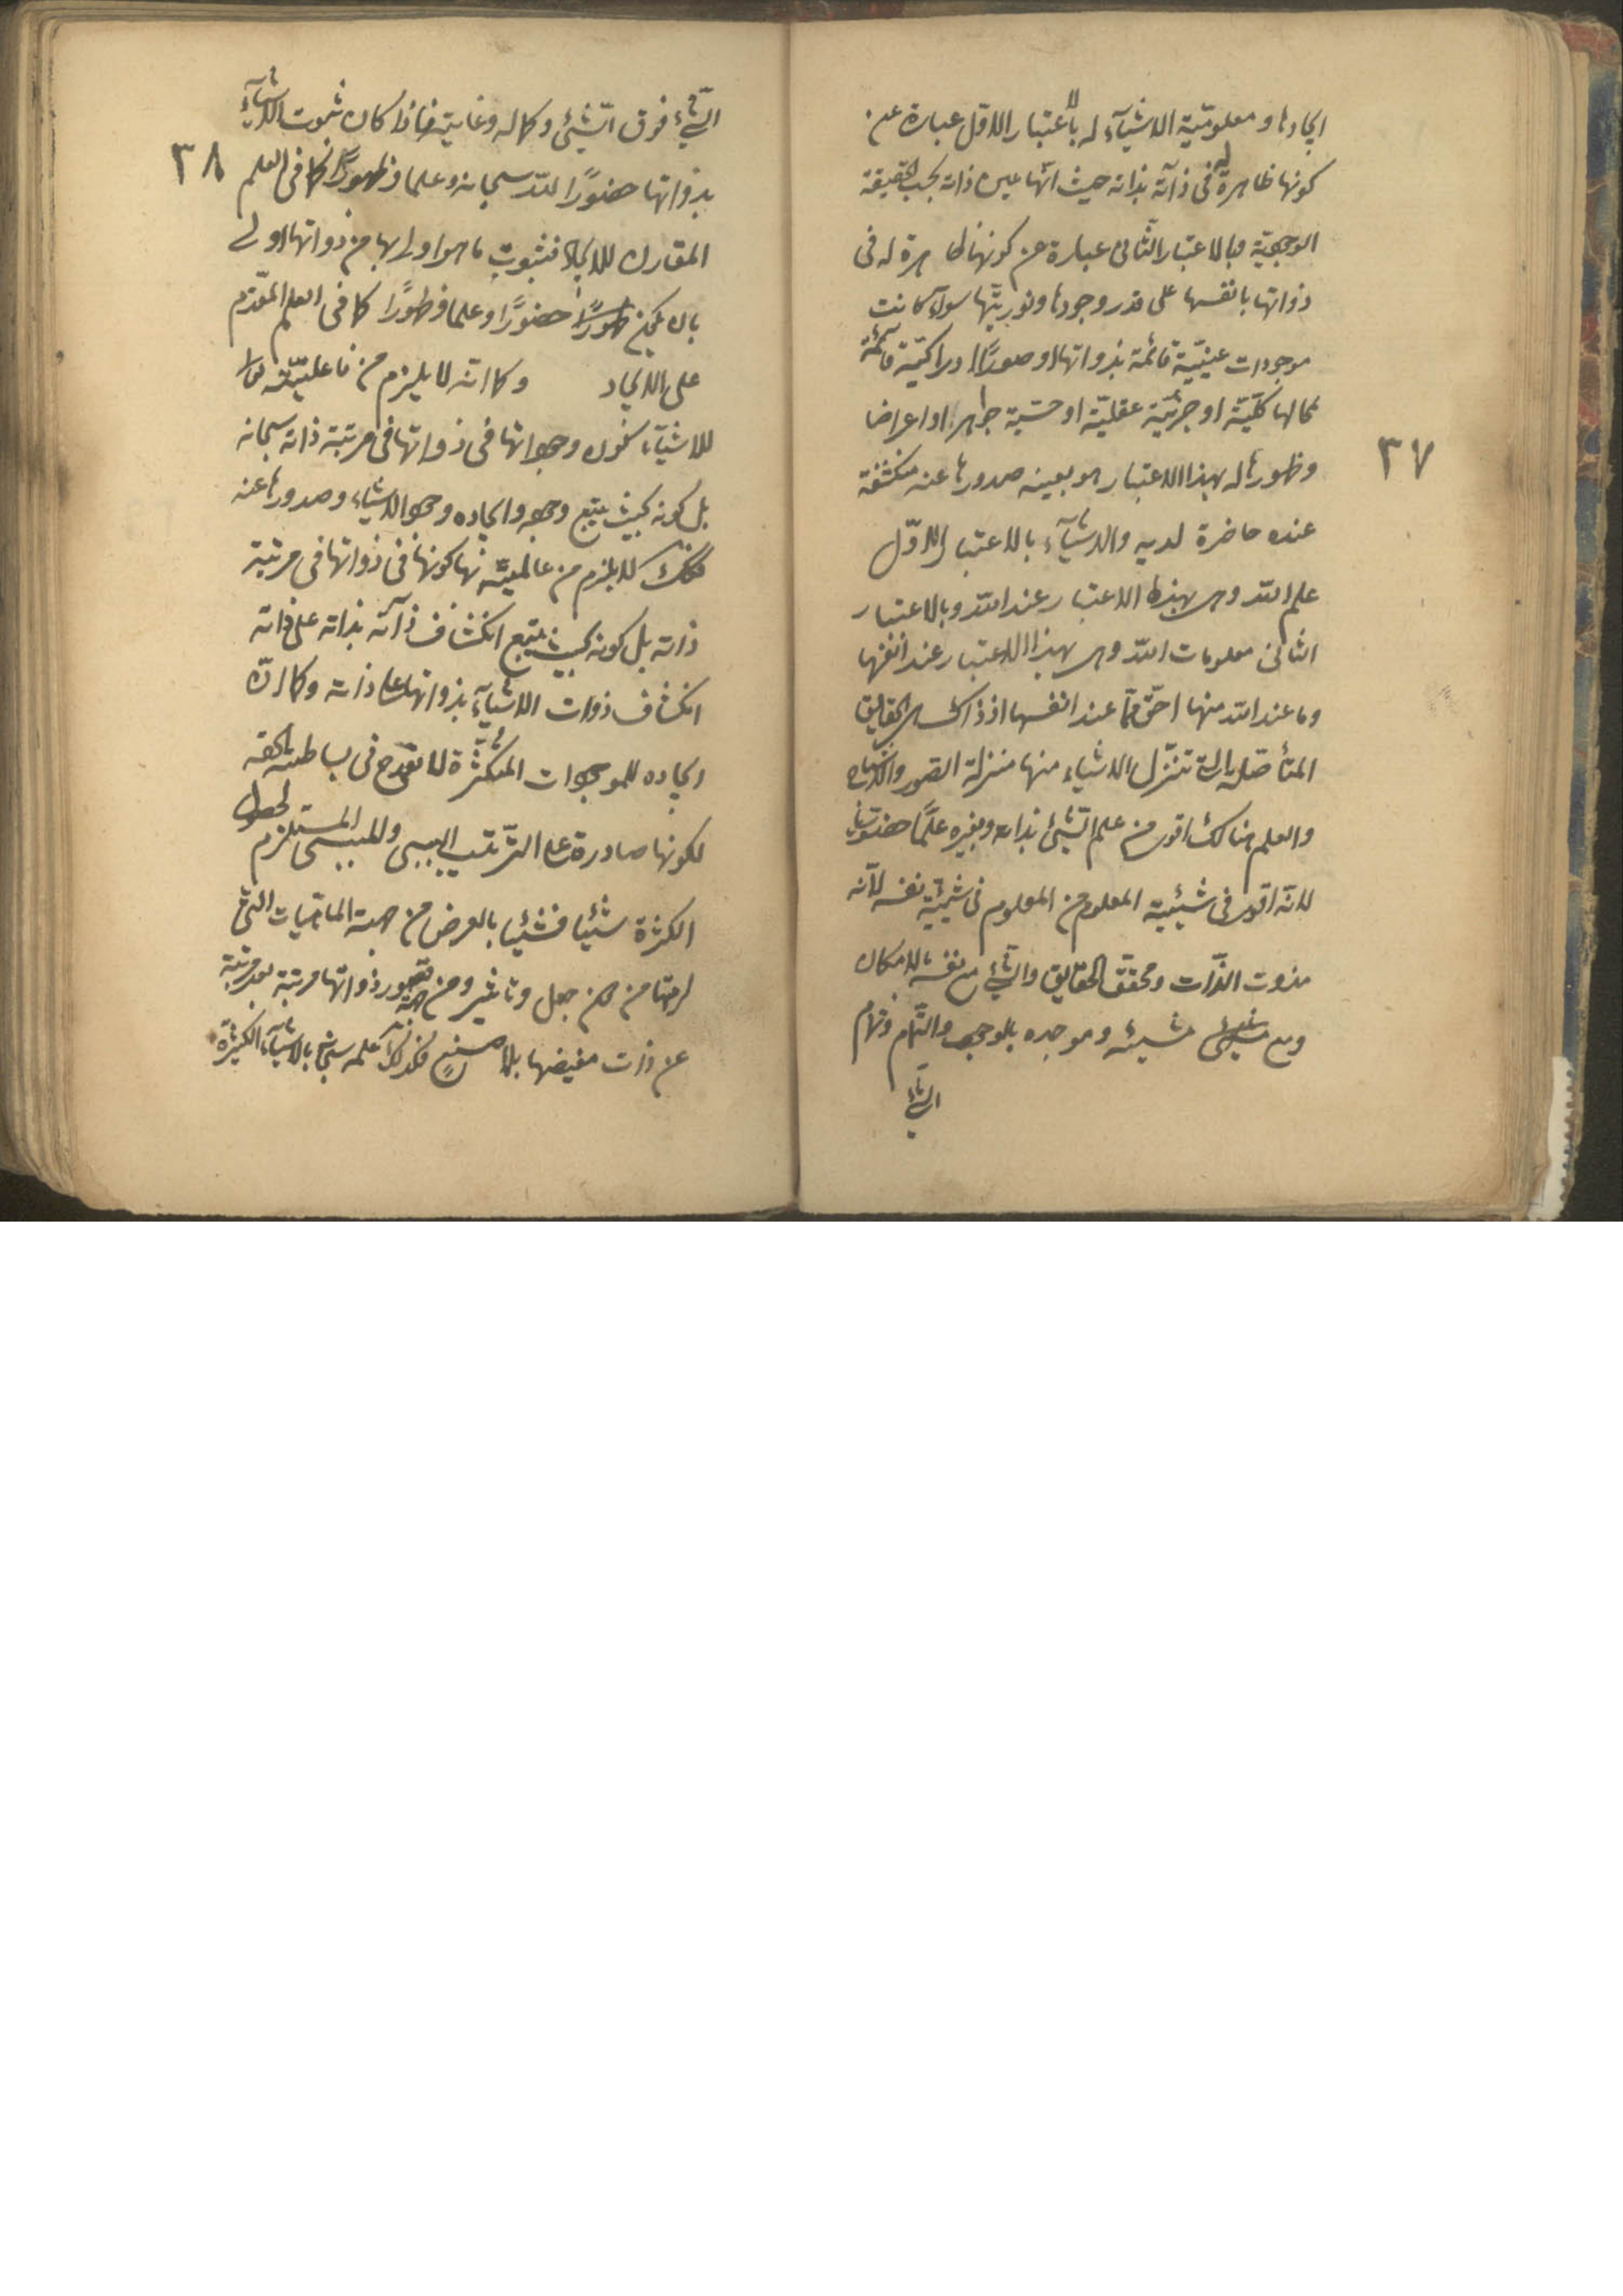 ايجادها و معلوميّة الاشيآء له بالاعتبار الاوّل عبارة عن
كونها ظاهرة له فى ذاته بذاته حيث انّها عين ذاته بحسب الحقيقة
الوجوديّة وبالاعتبار الثّانى عبارة عن كونها ظاهرة له فى
ذواتها بانفسها على قدر وجودها ونوريّتها سوآء كانت
موجودات عينيّة قائمة بذواتها او صورًا ادراكيّة قائمة
بمحالها كلّيّة او جزئيّة عقليّة او حسّيّة جواهر او اعراضا
٣٧
وظهورها له بهذا الاعتبار هو بعينه صدورها عنه منكشفة
عنده حاضرة لديه والاشيآء بالاعتبار الاوّل
علم اللّه وهى بهذا الاعتبار عند اللّه وبالاعتبار
الثانى معلومات اللّه وهى بهذا الاعتبار عند انفسها
وما عند اللّه منها احقّ ممّا عند انفسها اذ ذاك هى الحقايق
المتأصّلة الّتى تنزّل الاشياء منها منزلة الصّور والاشباح
والعلم هنالك اقوى من علم الشّئ بذاته وبغيره علمًا حضوريّا
لانّه اقوى فى شيئيّة المعلوم من المعلوم فى شيئيّة نفسه لانّه
مذوّت الذّوات ومحقّق الحقايق والشّئ مع نفسه بالامكان
ومع مشيّئه وموجده بالوجوب والتّمام وتمام
الشّئ
الشّئ فوق الشّئ وكماله وغايته فاذا كان ثبوت الاشيآء
٣٨
بذواتها حضورًا للّه سبحانه وعلما وظهورًا كما فى العلم
المقارن للايجاد فثبوت ما هو اولى بها من ذواتها اولى
بان يكون حضورًا وعلما وظهورًا كما فى العلم المقدّم
على الايجاد وكما انّه لا يلزم من فاعليّته تعالى
للاشيآء كون وجوداتها فى ذواتها فى مرتبة ذاته سبحانه
بل كونه بحيث يتبع وجوده وايجاده وجود الاشياء وصدورها عنه
فكذلك لا يلزم من عالميّته بها كونها فى ذواتها فى مرتبة
ذاته بل كونه بحيث يتبع انكشاف ذاته بذاته على ذاته
انكشاف ذوات الاشيآء بذواتها على ذاته وكما انّ
ايجاده للموجودات المتكثّرة لا تقدح فى بساطته الحقّه
لكونها صادرة على التّرتيب السببى والمسببى المستلزم لحصول
الكثرة شيئا فشيئا بالعرض من جهة الماهيّات الّتى
لزمتها من دون جعل وتاثير ومن جهة قصور ذواتها مرتبة بعد مرتبة
عن ذات مفيضها بلا صنع فكذلك علمه سبحانه بالاشيآء الكثيرة